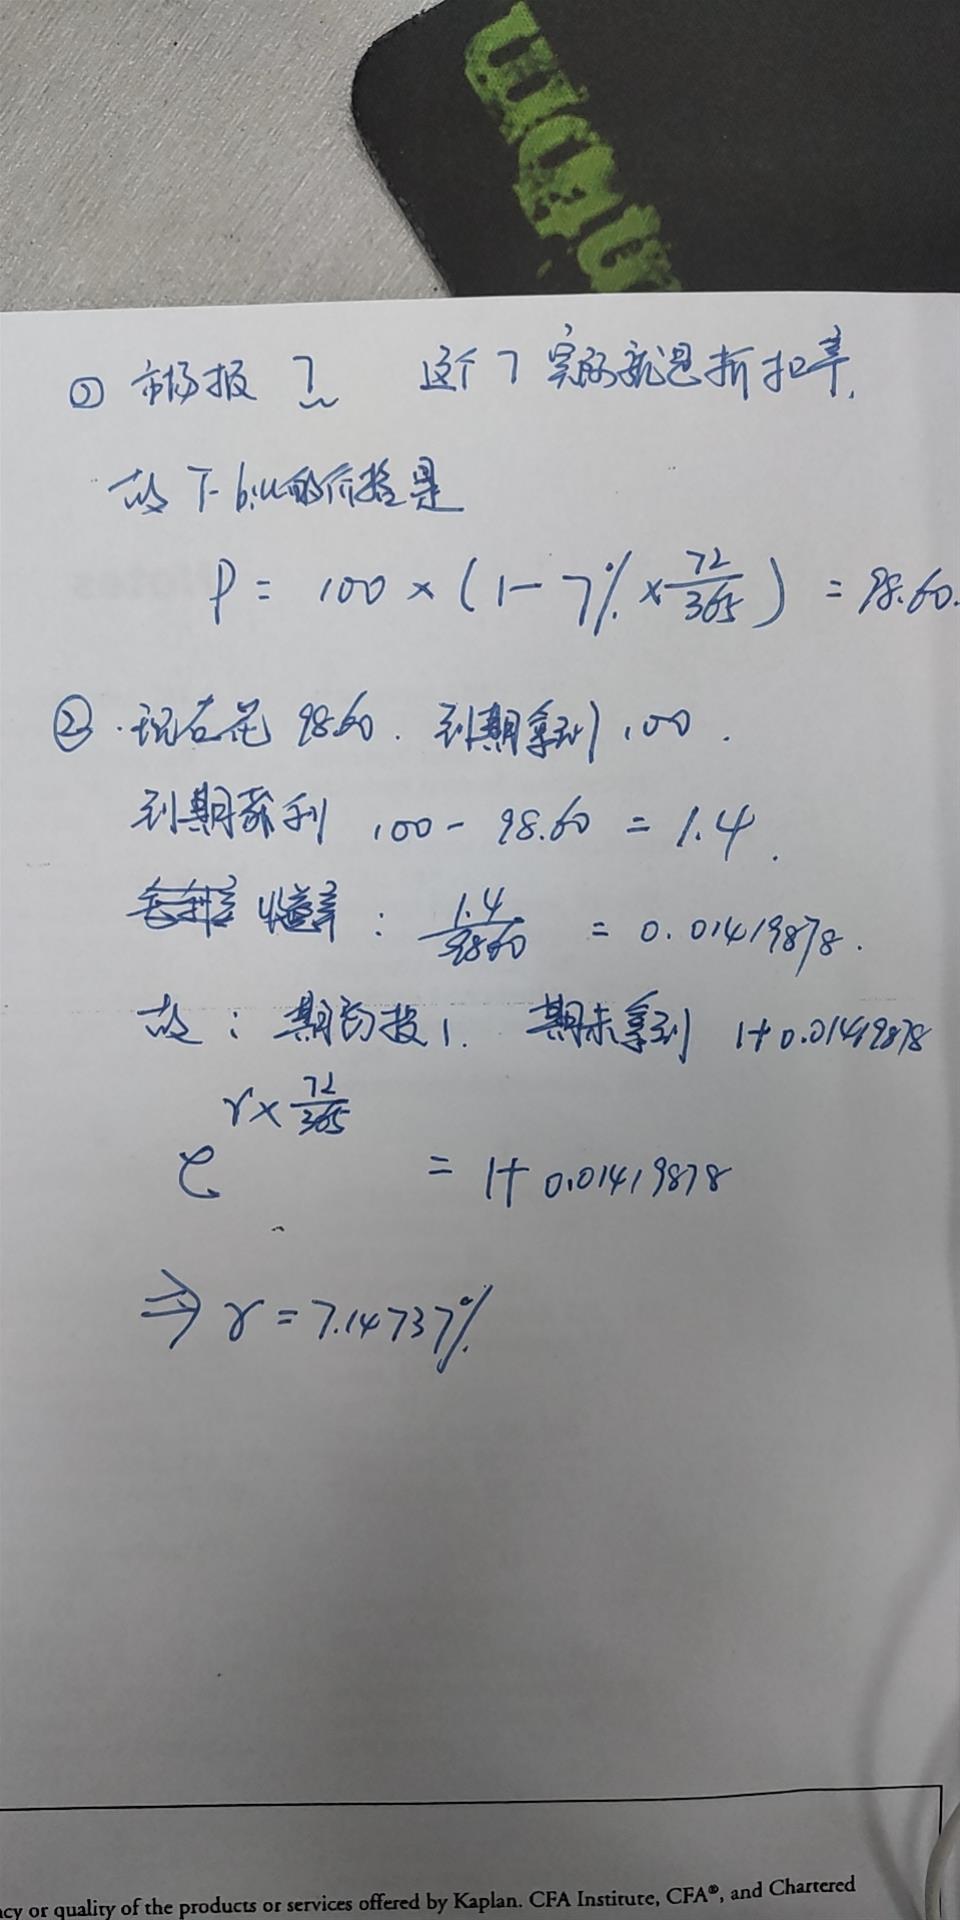 ① 市场报 7 这个7实际就是折扣率.
故 T-bill的价格是
P = 100 × (1 - 7% × 72/365) = 98.60.
② 现在花 98.60. 到期拿到 100.
到期获利 100 - 98.60 = 1.4.
收益率: 1.4/98.60 = 0.01419878.
故: 期初投1. 期末拿到 1+0.01419878
e^(r × 72/365) = 1+ 0.01419878
⇒ r = 7.14737%
cy or quality of the products or services offered by Kaplan. CFA Institute, CFA®, and Chartered